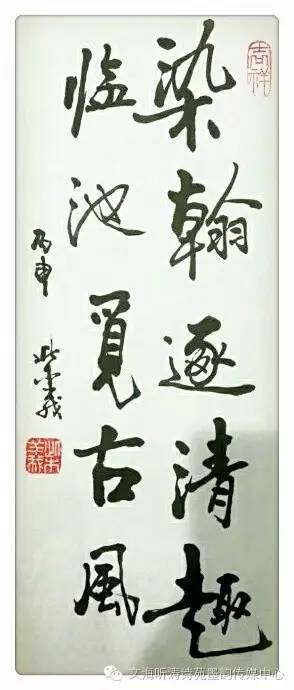 吉祥
染翰逐清趣
临池覓古風
丙申
文海听涛诗苑墨韵传媒中心